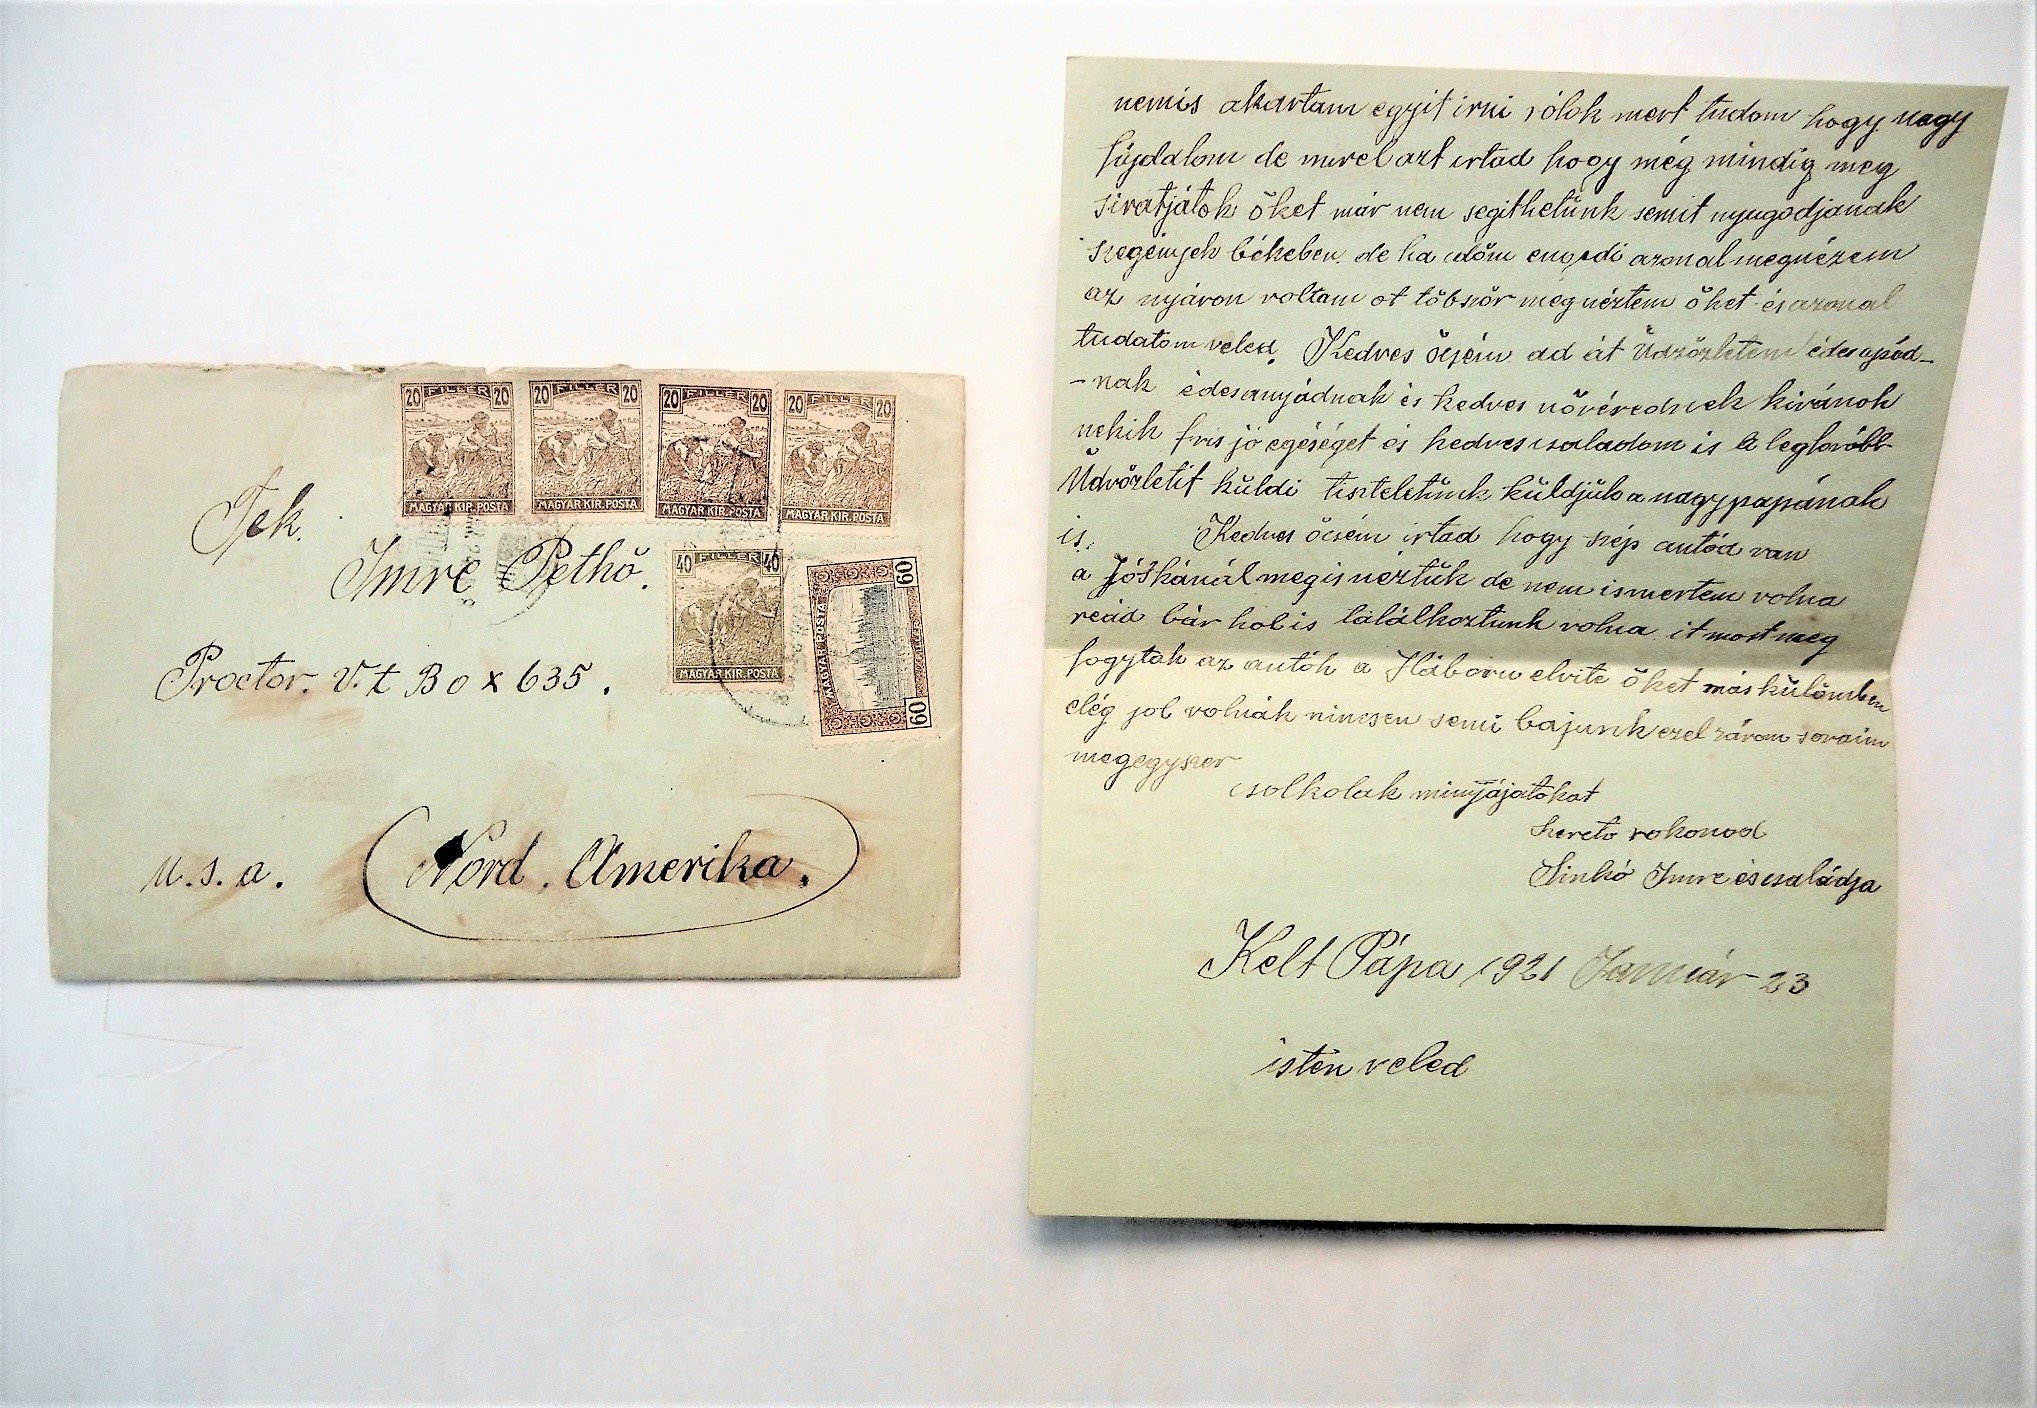 20 FILLÉR 20
MAGYAR KIR. POSTA
20 FILLÉR 20
MAGYAR KIR. POSTA
20 FILLÉR 20
MAGYAR KIR. POSTA
20 FILLÉR 20
MAGYAR KIR. POSTA
40 FILLÉR 40
MAGYAR KIR. POSTA
60 MAGYAR POSTA 60
Tek.
Imre Pethő.
Proctor. V.t Box 635.
U.S.a. Nord. Amerika.
nemis akartam egyit irni rólok mert tudom hogy nagy
fájdalom de mivel azt irtad hogy még mindig meg
siratjátok őket már nem segithetünk semit nyugodjanak
szegények békeben. de ha időm engedi azonal megnézem
az nyáron voltam ot töbször meg néztem őket és azonal
tudatom veled. Kedves öcsém ad át Üdvözletem édesapád-
-nak édesanyádnak és kedves nővérednek kivánok
nekik fris jó egéséget és kedves csaladom is a legforóbb
Üdvözletit küldi tiszteletünk küldjük a nagypapának
is. Kedves öcsém irtad hogy szép autód van
a Jóskánál megis neztük de nem ismertem volna
reád bár hol is találkoztunk volna it most meg
fogytak az autók a Háboru elvite őket máskülömben
elég jol volnák nincsen semi bajunk ezel zárom soraim
megegyszer
csolkolak minyájatokat
szerető rokonod
Sinkó Imre és családja
Kelt Pápa 1921 Január 23
isten veled